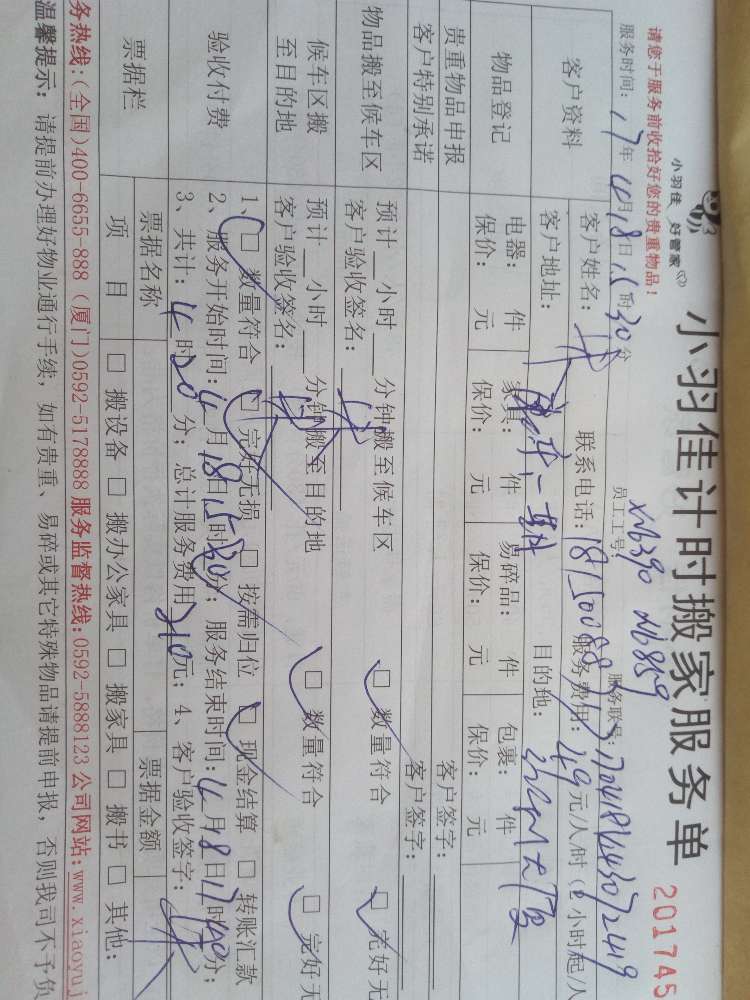 小羽佳 好管家
小羽佳计时搬家服务单
201745
请您于服务前收拾好您的贵重物品!
员工工号: XM390 M859
服务联号:
服务时间: 17年4月18日15时30分
客户资料
客户姓名:
联系电话:
服务费用: 49元/人/时(2小时起/人
客户地址:
目的地:
物品登记
电器: 件 家具: 件 易碎品: 件 包裹: 件
保价: 元 保价: 元 保价: 元 保价: 元
贵重物品申报
客户签字:
客户特别承诺
客户签字:
物品搬至候车区
预计 小时 分钟搬至候车区 □ 数量符合 □ 完好无
客户验收签名:
候车区搬
至目的地
预计 小时 分钟搬至目的地 □ 数量符合 □ 完好无
客户验收签名:
验收付费
1、□ 数量符合 □ 完好无损 □ 按需归位 □ 现金结算 □ 转账汇款
2、服务开始时间: 4月18日15时30分; 服务结束时间: 4月18日17时40分;
3、共计: 时 分; 总计服务费用210元; 4、客户验收签字:
票据栏
票据名称
票据金额
项 目 □ 搬设备 □ 搬办公家具 □ 搬家具 □ 搬书 □ 其他:
务热线:(全国)400-6655-888 (厦门)0592-5178888 服务监督热线:0592-5888123 公司网站:www.xiaoyuj
温馨提示: 请提前办理好物业通行手续, 如有贵重、易碎或其它特殊物品请提前申报, 否则我司不予负